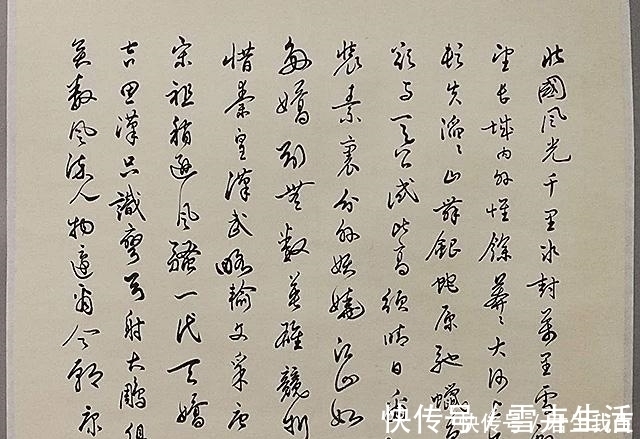 北國風光千里冰封萬里雪
望長城內外惟餘莽〻大河上
頓失滔〻山舞銀蛇原馳蠟
欲与天公試比高須晴日看
裝素裹分外妖嬈江山如
多嬌引無數英雄競折
惜秦皇漢武略輸文采唐
宋祖稍遜風騷一代天嬌
吉思漢只識彎弓射大鵰俱
矣數風流人物還看今朝 康
快传号